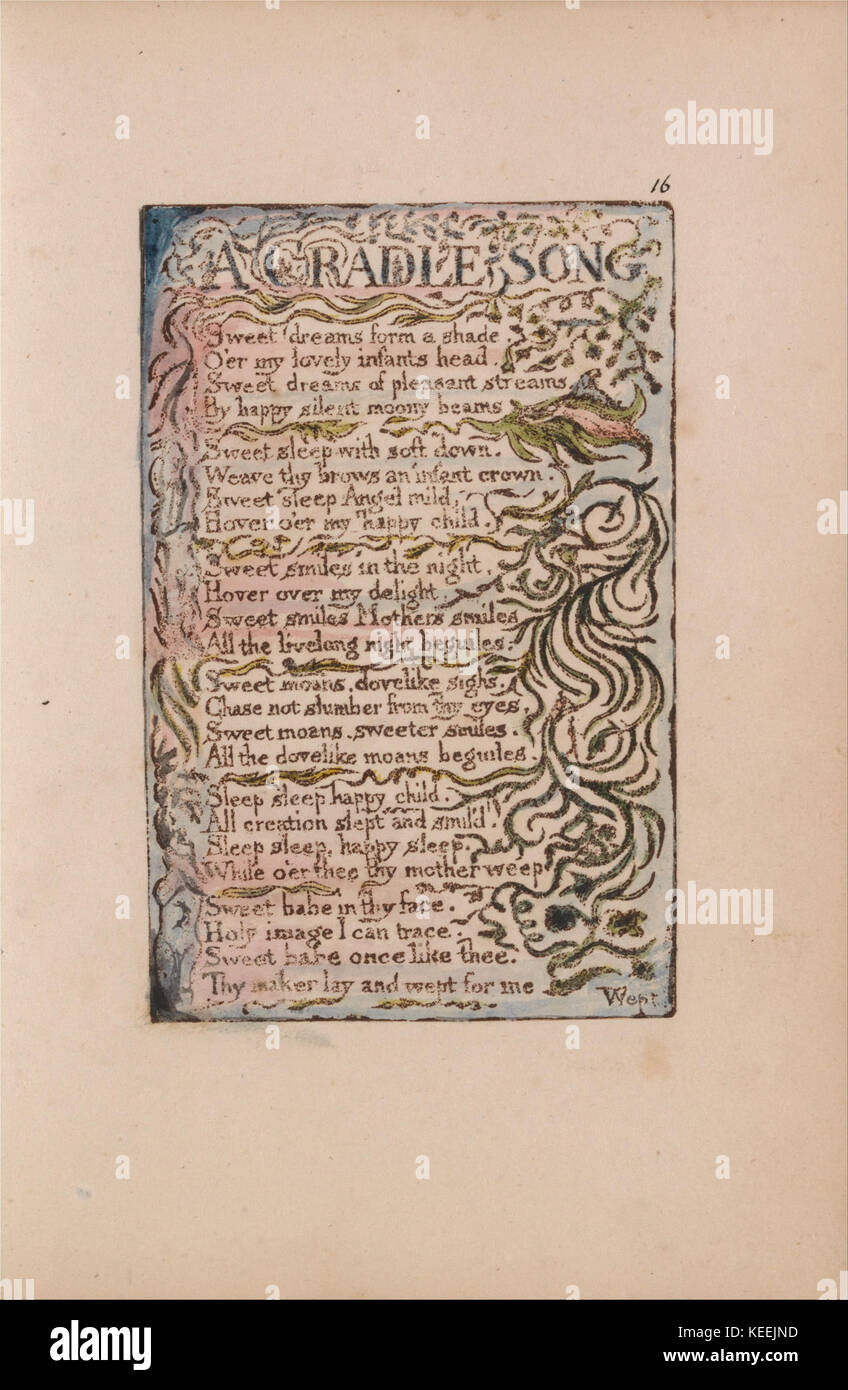 16
A CRADLE SONG
Sweet dreams form a shade.
O'er my lovely infants head.
Sweet dreams of pleasant streams,
By happy silent moony beams
Sweet sleep with soft down.
Weave thy brows an infant crown.
Sweet sleep Angel mild,
Hover o'er my happy child.
Sweet smiles in the night,
Hover over my delight.
Sweet smiles Mothers smiles
All the livelong night beguiles.
Sweet moans, dovelike sighs,
Chase not slumber from thy eyes,
Sweet moans, sweeter smiles,
All the dovelike moans beguiles.
Sleep sleep happy child.
All creation slept and smil'd.
Sleep sleep, happy sleep,
While o'er thee thy mother weep
Sweet babe in thy face,
Holy image I can trace.
Sweet babe once like thee,
Thy maker lay and wept for me
Wept
a alamy
alamy stock photo
KEEJND
www.alamy.com